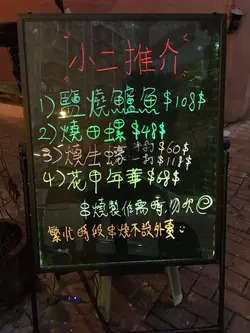 小二推介
1) 鹽燒鱸魚 $108$
2) 燒田螺 $48$
3) 燒生蠔 半打 $60$
一打 $118$
4) 花甲年華 $68$
串燒製作需時,勿吹
繁忙時段串燒不設外賣